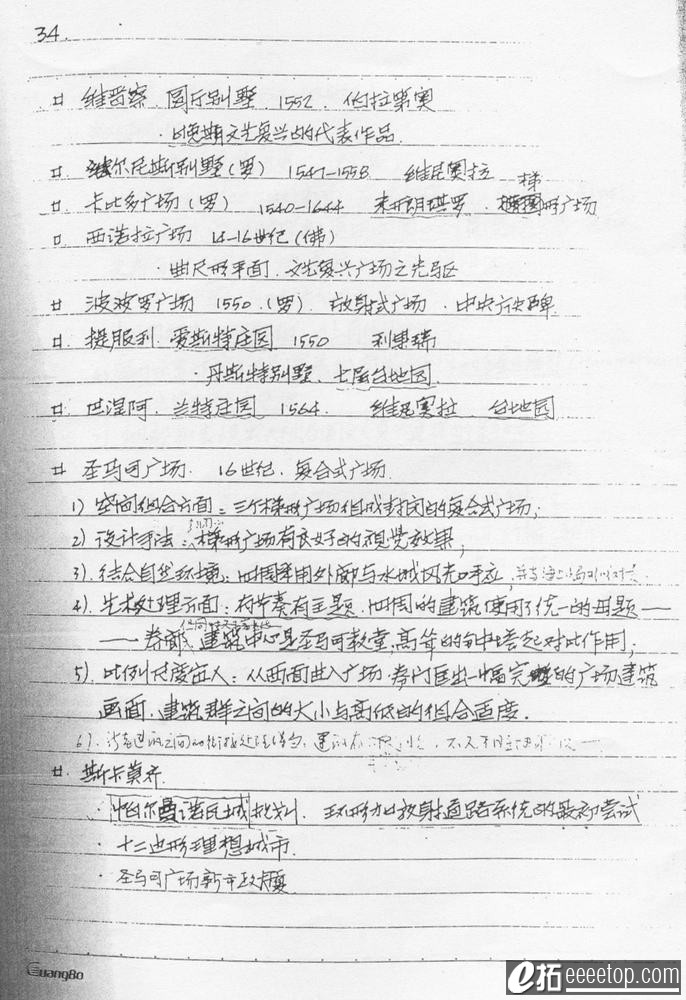 34.
□ 维晋察 圆厅别墅 1552. 伯拉第奥
· 晚期文艺复兴的代表作品.
□ 维尔尼斯别墅(罗) 1547-1558 维尼奥拉
□ 卡比多广场(罗) 1540-1644 米开朗琪罗. 梯形广场
□ 西诺拉广场 14-16世纪(佛)
· 曲尺形平面. 文艺复兴广场之先驱
□ 波波罗广场 1550.(罗). 放射式广场. 中央方尖碑
□. 提服利. 爱斯特庄园 1550 利果瑞
· 丹斯特别墅、七层台地园.
□. 巴涅阿. 兰特庄园. 1564. 维尼奥拉 台地园
□ 圣马可广场. 16世纪. 复合式广场.
1) 空间组合方面:三个梯形广场组成封闭的复合式广场;
2) 设计手法:梯形广场有良好的视觉效果;
3). 结合自然环境:四周采用外廊与水城风光呼应,
4). 艺术处理方面:有节奏有主题. 四周的建筑使用了统一的母题——
——券廊. 建筑中心是圣马可教堂. 高耸的钟塔起对比作用;
5). 比例尺度宜人:从西面进入广场. 券门框出一幅完整的广场建筑
画面. 建筑群之间的大小与高低的组合适度.
6).
□ 斯卡莫齐
· 帕尔曼诺瓦城规划. 环形加放射道路系统的最初尝试
· 十二边形理想城市.
· 圣马可广场新市政大厦
GuangBo
e拓 eeeetop.com